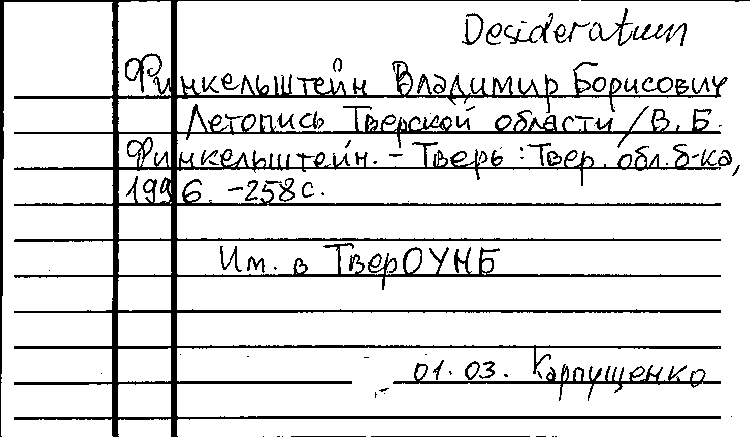 Desideratum
Финкельштейн Владимир Борисович
Летопись Тверской области / В. Б.
Финкельштейн. – Тверь : Твер. обл. б-ка,
1996. – 258 с.
Им. в ТверОУНБ
01. 03. Карпущенко